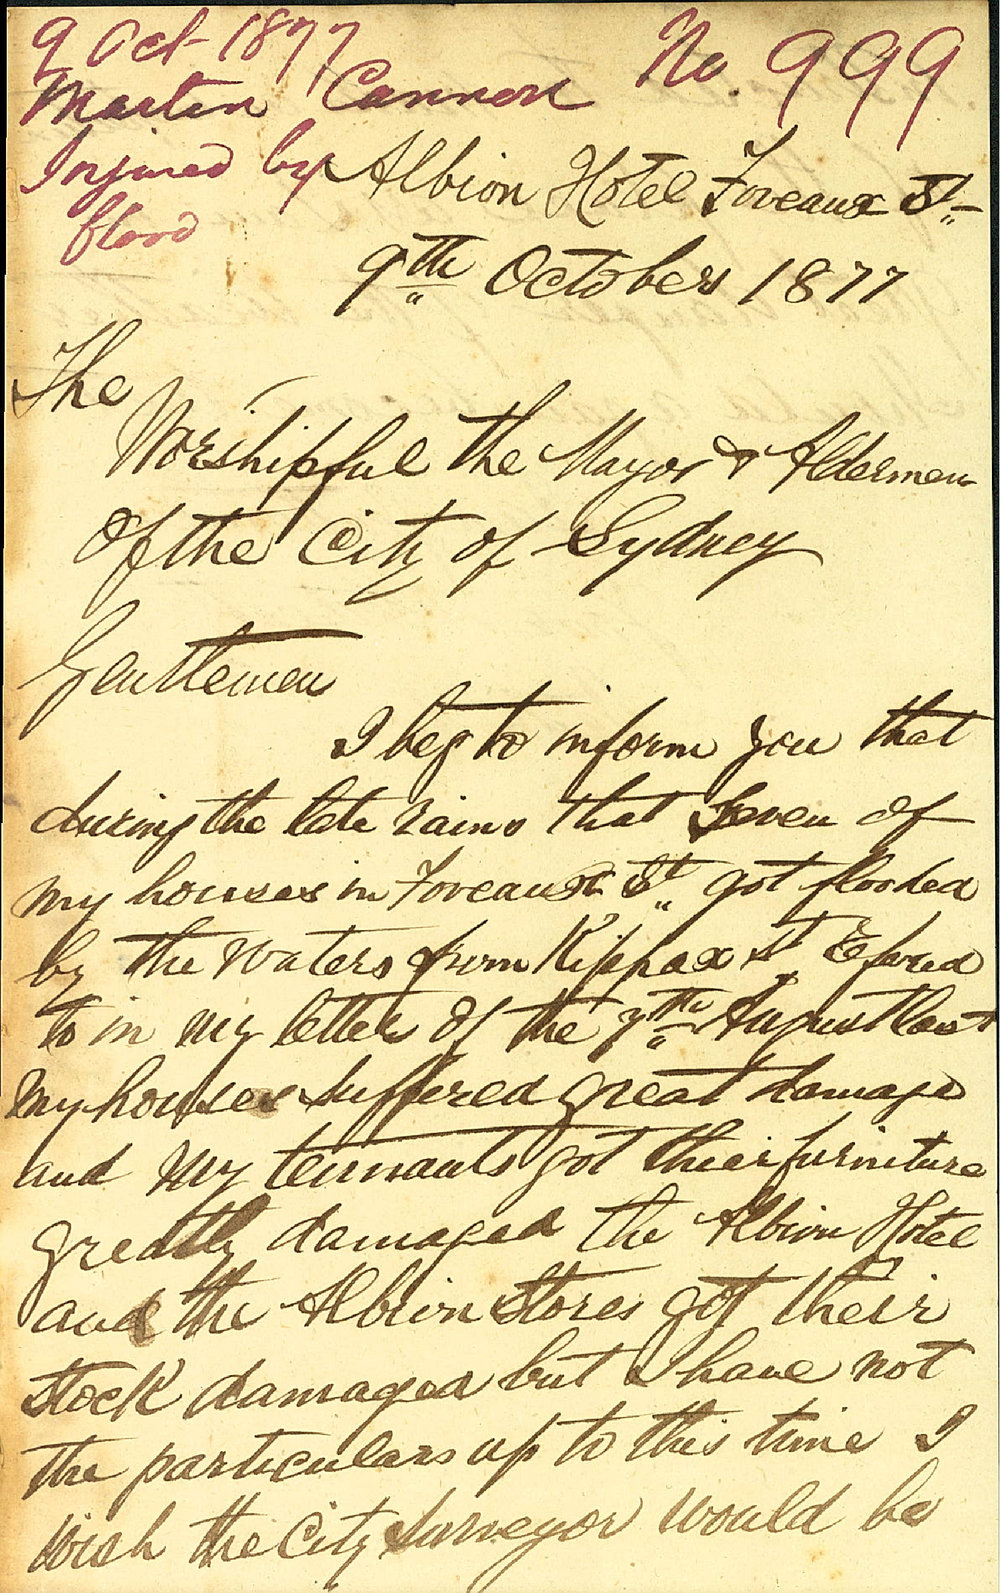 9 Oct 1877 No. 999
Martin Cannon
Injured by
flood
Albion Hotel Foveaux St
9th October 1877
The
Worshipful the Mayor & Aldermen
Of the City of Sydney
Gentlemen
I beg to inform you that
during the late rains that Seven of
my houses in Foveaux St got flooded
by the waters from Kippax St Refered
to in my letter of the 7th August last
My houses suffered great damage
and my tennants got thier furniture
greatly damaged the Albion Hotel
and the Albion Stores got their
stock damaged but I have not
the particulars up to this time I
Wish the City Surveyor would be